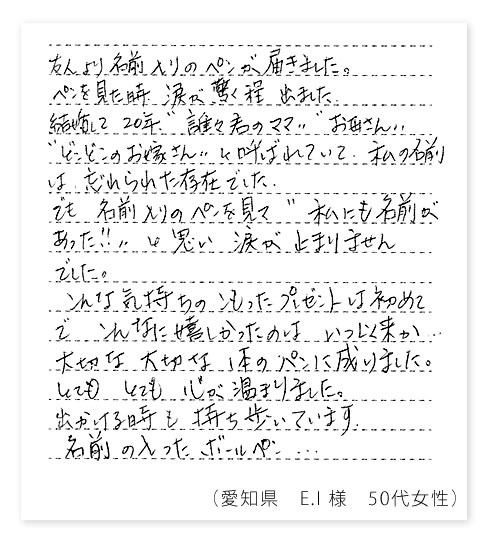 友人より名前入りのペンが届きました。
ペンを見た時 涙が驚く程 出ました
結婚して20年 "誰々君のママ" "お母さん"
"どこどこのお嫁さん" と呼ばれていて、私の名前
は 忘れられた存在でした.
でも 名前入りのペンを見て "私にも名前が
あった!!" と思い 涙が止まりません
でした。
こんな気持ちのこもったプレゼントは初めて
で こんなに嬉しかったのは いつ以来か…
大切な 大切な 1本のペンに成りました。
とても とても 心が温まりました。
出かける時も 持ち歩いています.
名前の入った ボールペン…
(愛知県 E.I 様 50代女性)